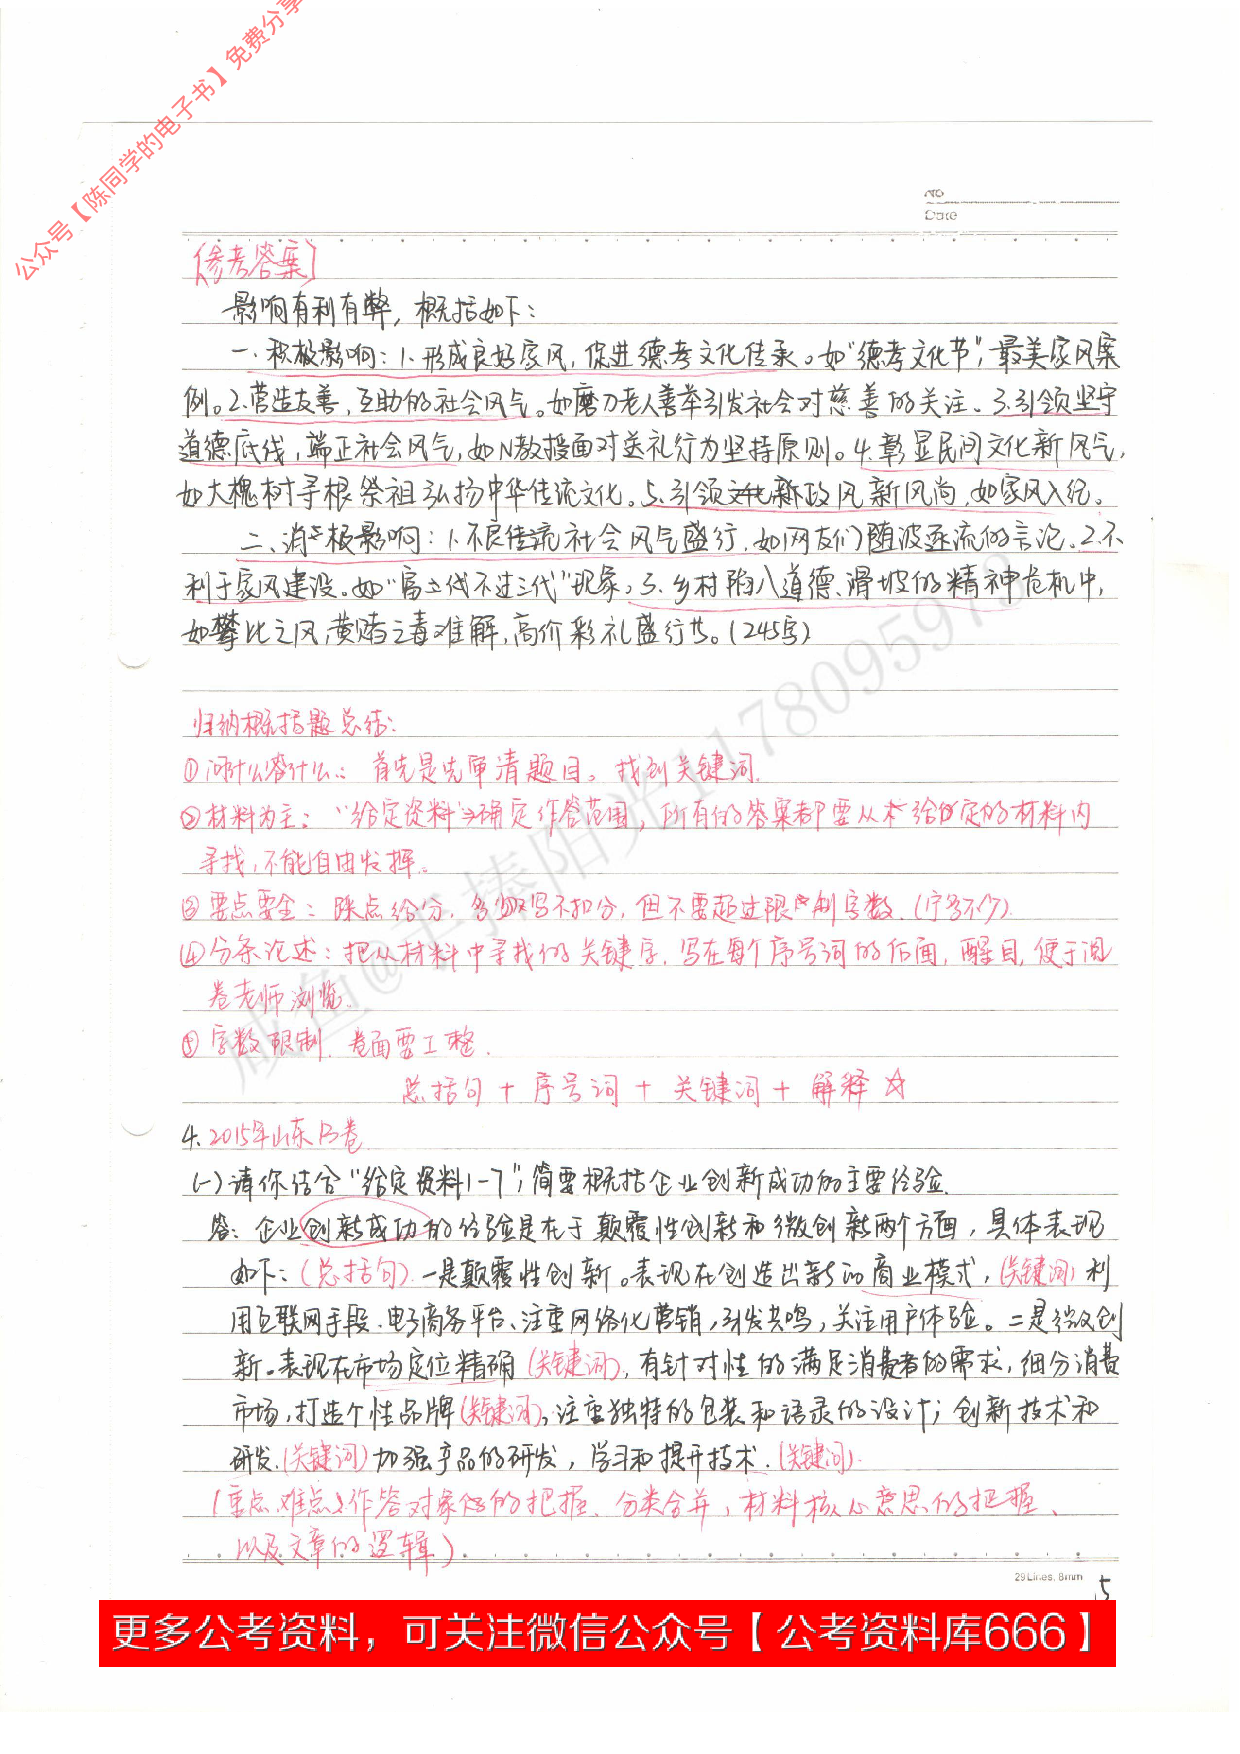 公众号【陈同学的电子书】免费分享
NO
Date
[参考答案]
影响有利有弊，概括如下：
一.积极影响：1.形成良好家风，促进德孝文化传承。如“德孝文化节”，最美家风案
例。2.营造友善、互助的社会风气。如磨刀老人善举引发社会对慈善的关注。3.引领坚守
道德底线，端正社会风气，如N教授面对送礼行为坚持原则。4.彰显民间文化新风气，
如大槐树寻根祭祖弘扬中华传统文化。5.引领新政风新风尚，如家风入纪。
二、消极影响：1.不良传流社会风气盛行，如网友们随波逐流的言论。2.不
利于家风建设。如“富立代不过三代”现象。3.乡村陷入道德、滑坡的精神危机中，
如攀比之风，黄赌之毒难解，高价彩礼盛行书。(245字)
归纳概括题总结：
①问什么答什么：首先是先审清题目。找到关键词.
②材料为主：“给定资料”→确定作答范围，所有的答案都要从给定的材料内
寻找，不能自由发挥。
③要点要全：踩点给分，多写不扣分，但不要超过限制字数.(宁多不少)
④分条论述：把从材料中寻找的关键字，写在每个序号词的后面，醒目，便于阅
卷老师浏览.
⑤字数限制.卷面要工整.
总括句＋序号词＋关键词＋解释☆
4.2015年山东B卷
(一)请你结合“给定资料1-7”，简要概括企业创新成功的主要经验.
答：企业创新成功的经验是在于颠覆性创新和微创新两个方面，具体表现
如下：(总括句).一是颠覆性创新。表现在创造出新的商业模式，(关键词)利
用互联网手段、电子商务平台、注重网络化营销，引发共鸣，关注用户体验。二是微创
新.表现在市场定位精确(关键词)，有针对性的满足消费者的需求，细分消费
市场，打造个性品牌(关键词)，注重独特的包装和语录的设计；创新技术和
研发(关键词)加强产品的研发，学习和提升技术.(关键词).
(重点、难点：作答对象的把握、分类合并，材料核心意思的把握、
以及文章的逻辑)
29Lines, 8mm
5
更多公考资料，可关注微信公众号【公考资料库666】
咸鱼@手捧阳光1178095979